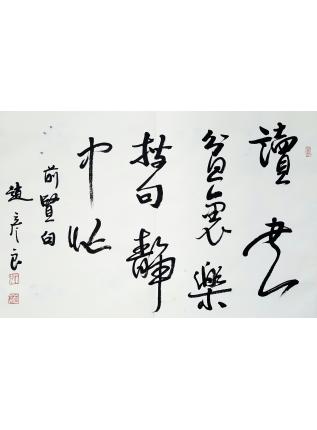 讀書
貧裏樂
搜句靜
中忙
前賢句
趙彥良